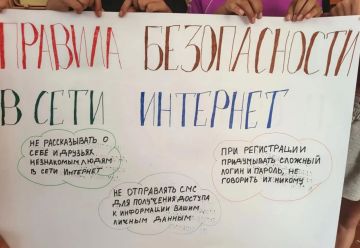 ПРАВИЛА БЕЗОПАСНОСТИ
В СЕТИ ИНТЕРНЕТ
НЕ РАССКАЗЫВАТЬ О
СЕБЕ И ДРУЗЬЯХ
НЕЗНАКОМЫМ ЛЮДЯМ
В СЕТИ ИНТЕРНЕТ
НЕ ОТПРАВЛЯТЬ СМС
ДЛЯ ПОЛУЧЕНИЯ ДОСТУПА
К ИНФОРМАЦИИ ВАШИМ
ЛИЧНЫМ ДАННЫМ
ПРИ РЕГИСТРАЦИИ
ПРИДУМЫВАТЬ СЛОЖНЫЙ
ЛОГИН И ПАРОЛЬ, НЕ
ГОВОРИТЬ ИХ НИКОМУ